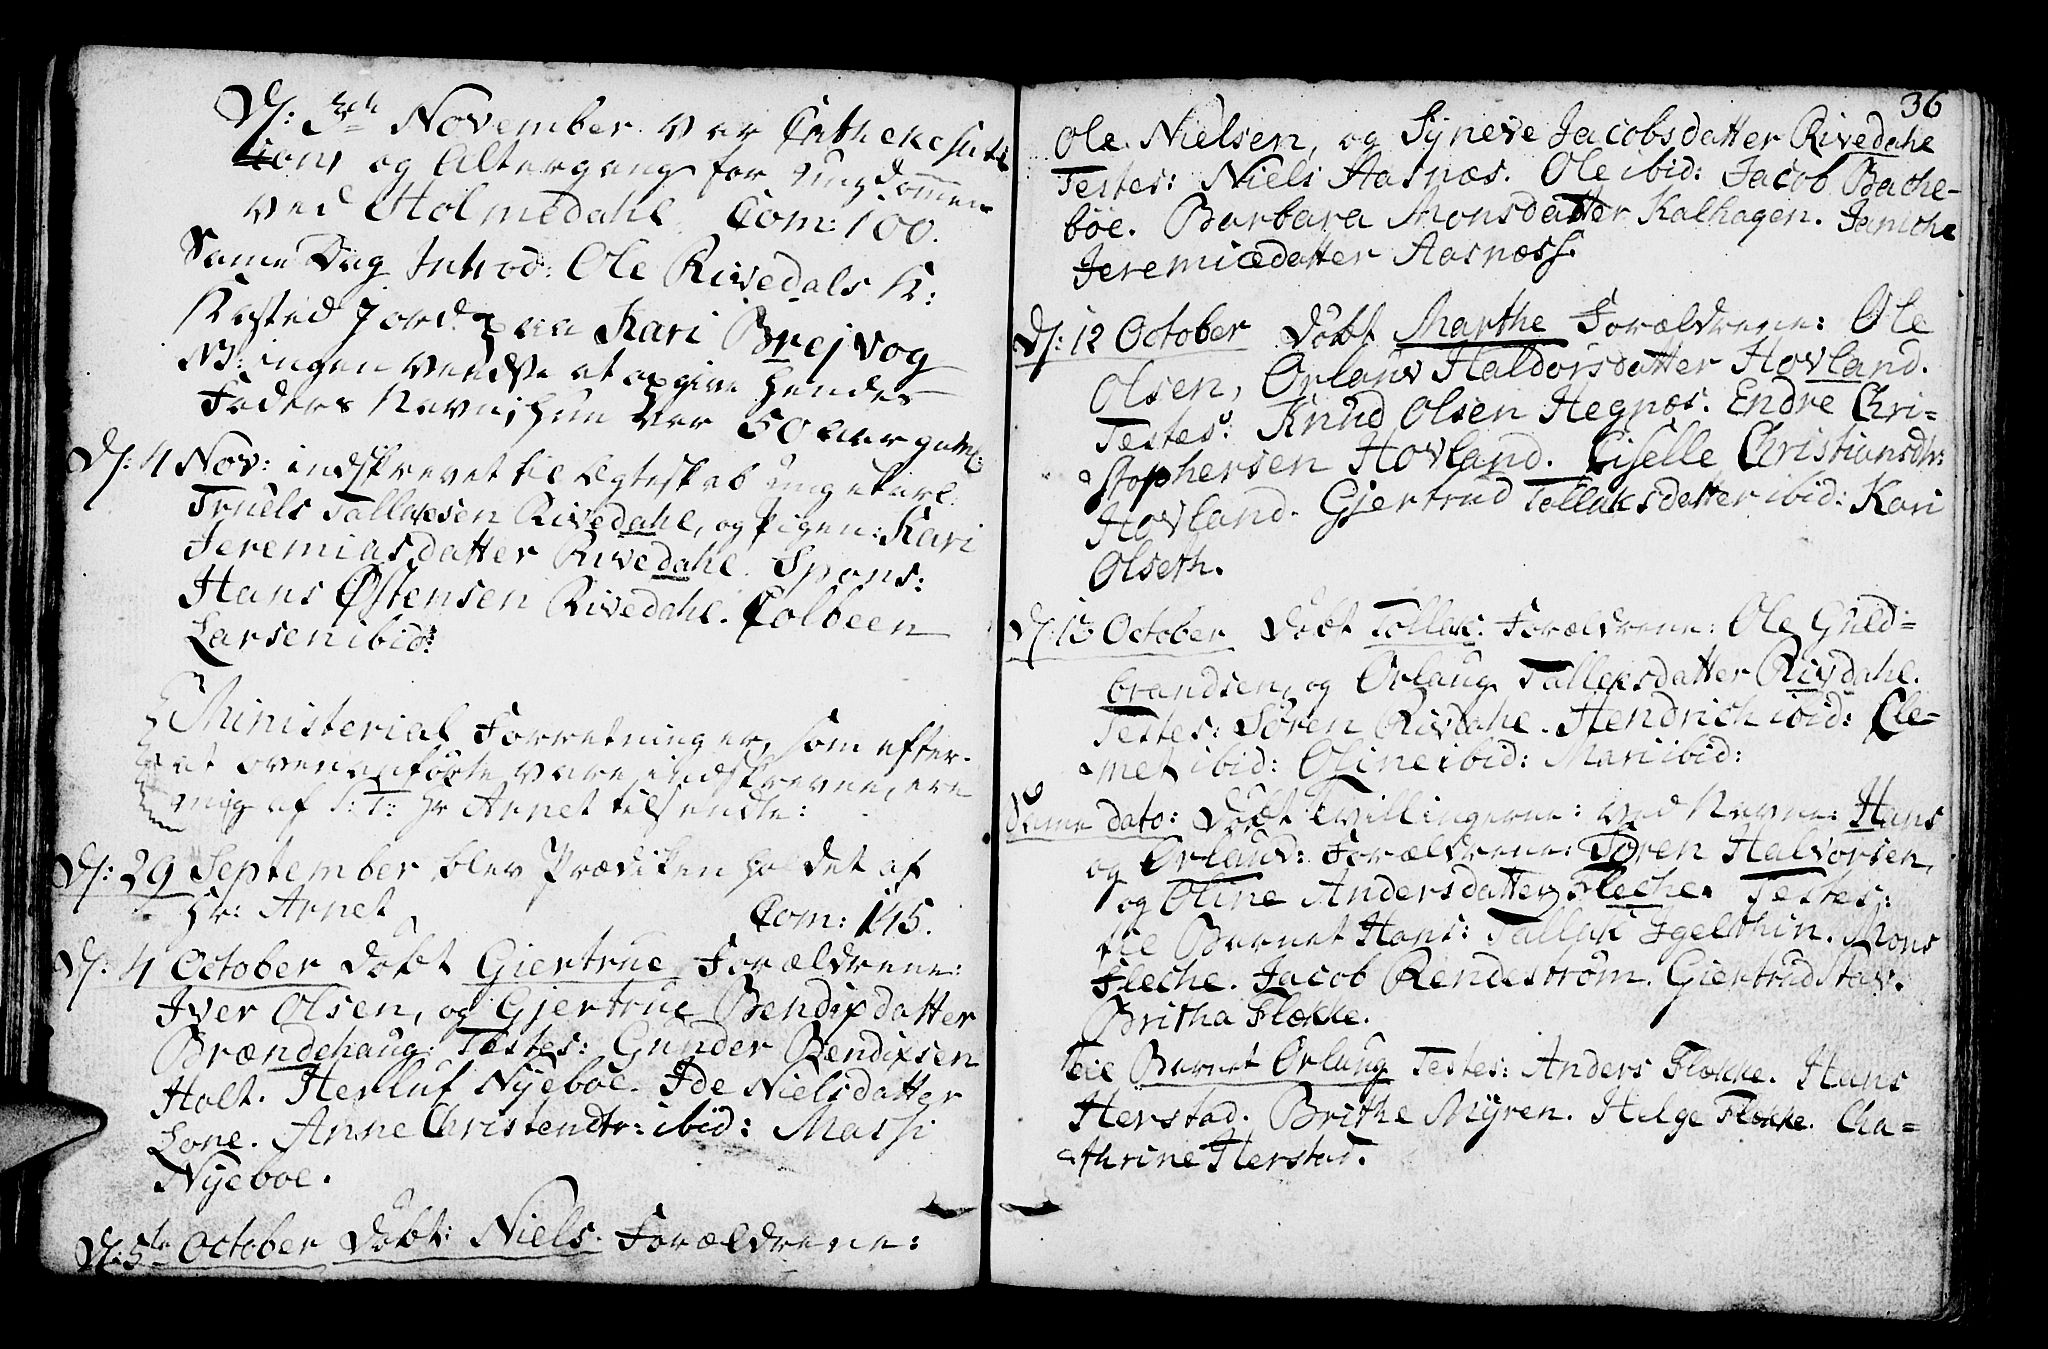 D: 3die November var Cathechisa-
tion og Altergang for Ungdommen
ved Holmedahl. Com: 100.
Same Dag Introd: Ole Rivedals K:
Kasted Jord paa Kari Brejvog
NB: ingen vendte at opgive hendes
Faders Navn, hun var 50 Aar gaml:
D: 4 Nov: indskrevet til Ægteskab unge Karl
Truels Tallaksen Rivedahl, og Pigen: Kari
Jeremiasdatter Rivedahl. Spons:
Hans Østensen Rivedahl. Colbeen
Larsen ibid:
Ministerial Forretninger, som efter-
at ovenanførte vare indskrevne, ere
mig af S: T: Hr Arnet tilsendte:
D: 29 September blev Prædiken holdet af
Hr: Arnet Com: 145.
D: 4 October Døbt Giertrue Forældrene:
Iver Olsen, og Gjertrue Bendixdatter
Brændehaug: Testes: Gunder Bendixsen
Holt. Herluf Nyeboe. Ide Nielsdatter
Lone. Anne Christendtr: ibid: Massi
Nyeboe.
D: 5te October Døbt: Niels. Forældrene:
36
Ole Nielsen, og Syneve Jacobsdatter Rivedahl
Testes: Niels Aasnæs. Ole ibid: Jacob Bache-
böe. Barbara Monsdatter Kalhagen. Janiche
Jeremiædatter Aasnæss.
D: 12 October Døbt Marthe Forældrene: Ole
Olsen, Orlaug Haldorsdatter Hovland.
Testes: Knud Olsen Hegnæs. Endre Chri-
stophersen Hovland. Ciselle Christiansdtr:
Hovland. Gjertrud Tollaksdatter ibid: Kari
Olseth.
D: 13 October Døbt Tollak: Forældrene: Ole Guld-
brandsen, og Orlaug Tallaksdatter Rivdahl.
Testes: Søren Rivdahl. Hendrich ibid: Cle-
met ibid: Oline ibid: Mari ibid:
Same dato: Døbt Tvillingerne: ved Navne: Hans
og Orlaug: Forældrene: Søren Halvorsen,
og Oline Andersdatter Fleche. Testes:
til Barnet Hans: Tallak Igelthin. Mons
Fleche. Jacob Rendestrøm. Giertrud Stav.
Britha Flokke.
Til Barnet Orlaug Testes: Anders Flokke. Hans
Herstad. Brithe Myren. Helge Flokke. Cha-
thrine Herstad.